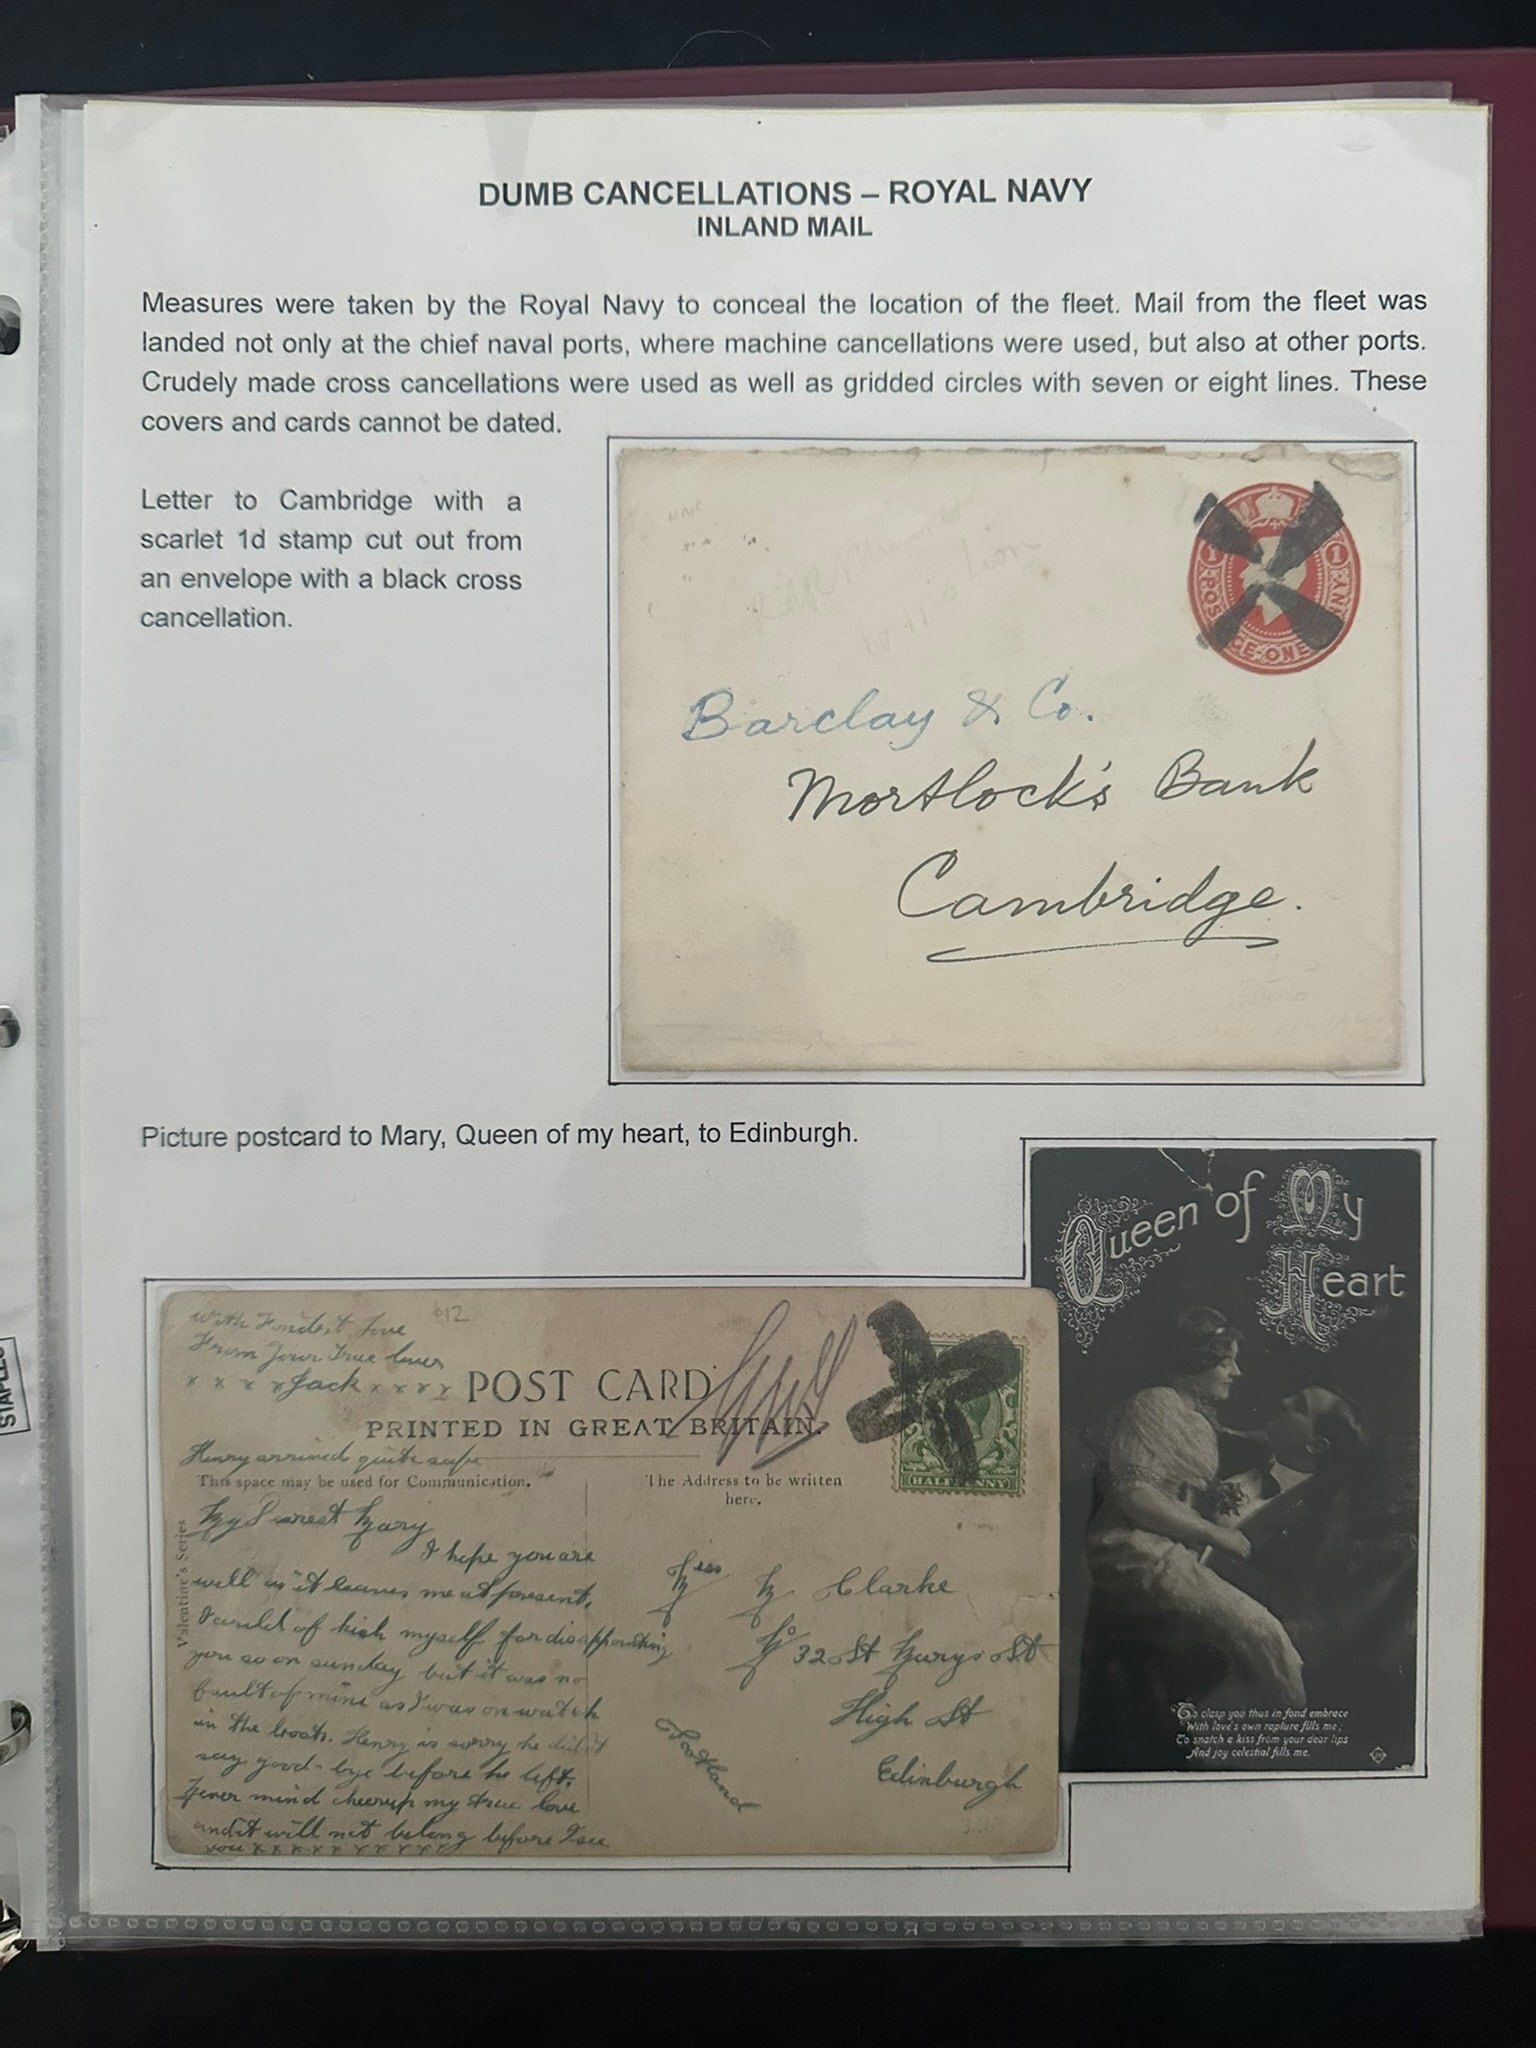 DUMB CANCELLATIONS – ROYAL NAVY
INLAND MAIL
Measures were taken by the Royal Navy to conceal the location of the fleet. Mail from the fleet was
landed not only at the chief naval ports, where machine cancellations were used, but also at other ports.
Crudely made cross cancellations were used as well as gridded circles with seven or eight lines. These
covers and cards cannot be dated.
Letter to Cambridge with a
scarlet 1d stamp cut out from
an envelope with a black cross
cancellation.
1 1
GE·ONE
Barclay & Co.
Mortlock's Bank
Cambridge.
Picture postcard to Mary, Queen of my heart, to Edinburgh.
Queen of My
Heart
To clasp you thus in fond embrace
With love's own rapture fills me,
To snatch a kiss from your dear lips
And joy celestial fills me.
With Fondest Love
From Your True lover
x x x x Jack x x x x x
POST CARD
PRINTED IN GREAT BRITAIN.
Henry arrived quite safe
This space may be used for Communication.
The Address to be written
here.
HALFPENNY
Valentine's Series
My Dearest Mary
I hope you are
well as it leaves me at present.
I could of kick myself for disappointing
you so on sunday but it was no
fault of mine as I was on watch
in the boats. Henry is sorry he didn't
say good-bye before he left.
Never mind cheerup my true love
and it will not be long before I see
you x x x x x x x x x x
Miss M Clarke
32 St Marys St
High St
Edinburgh
Scotland
STAPLES